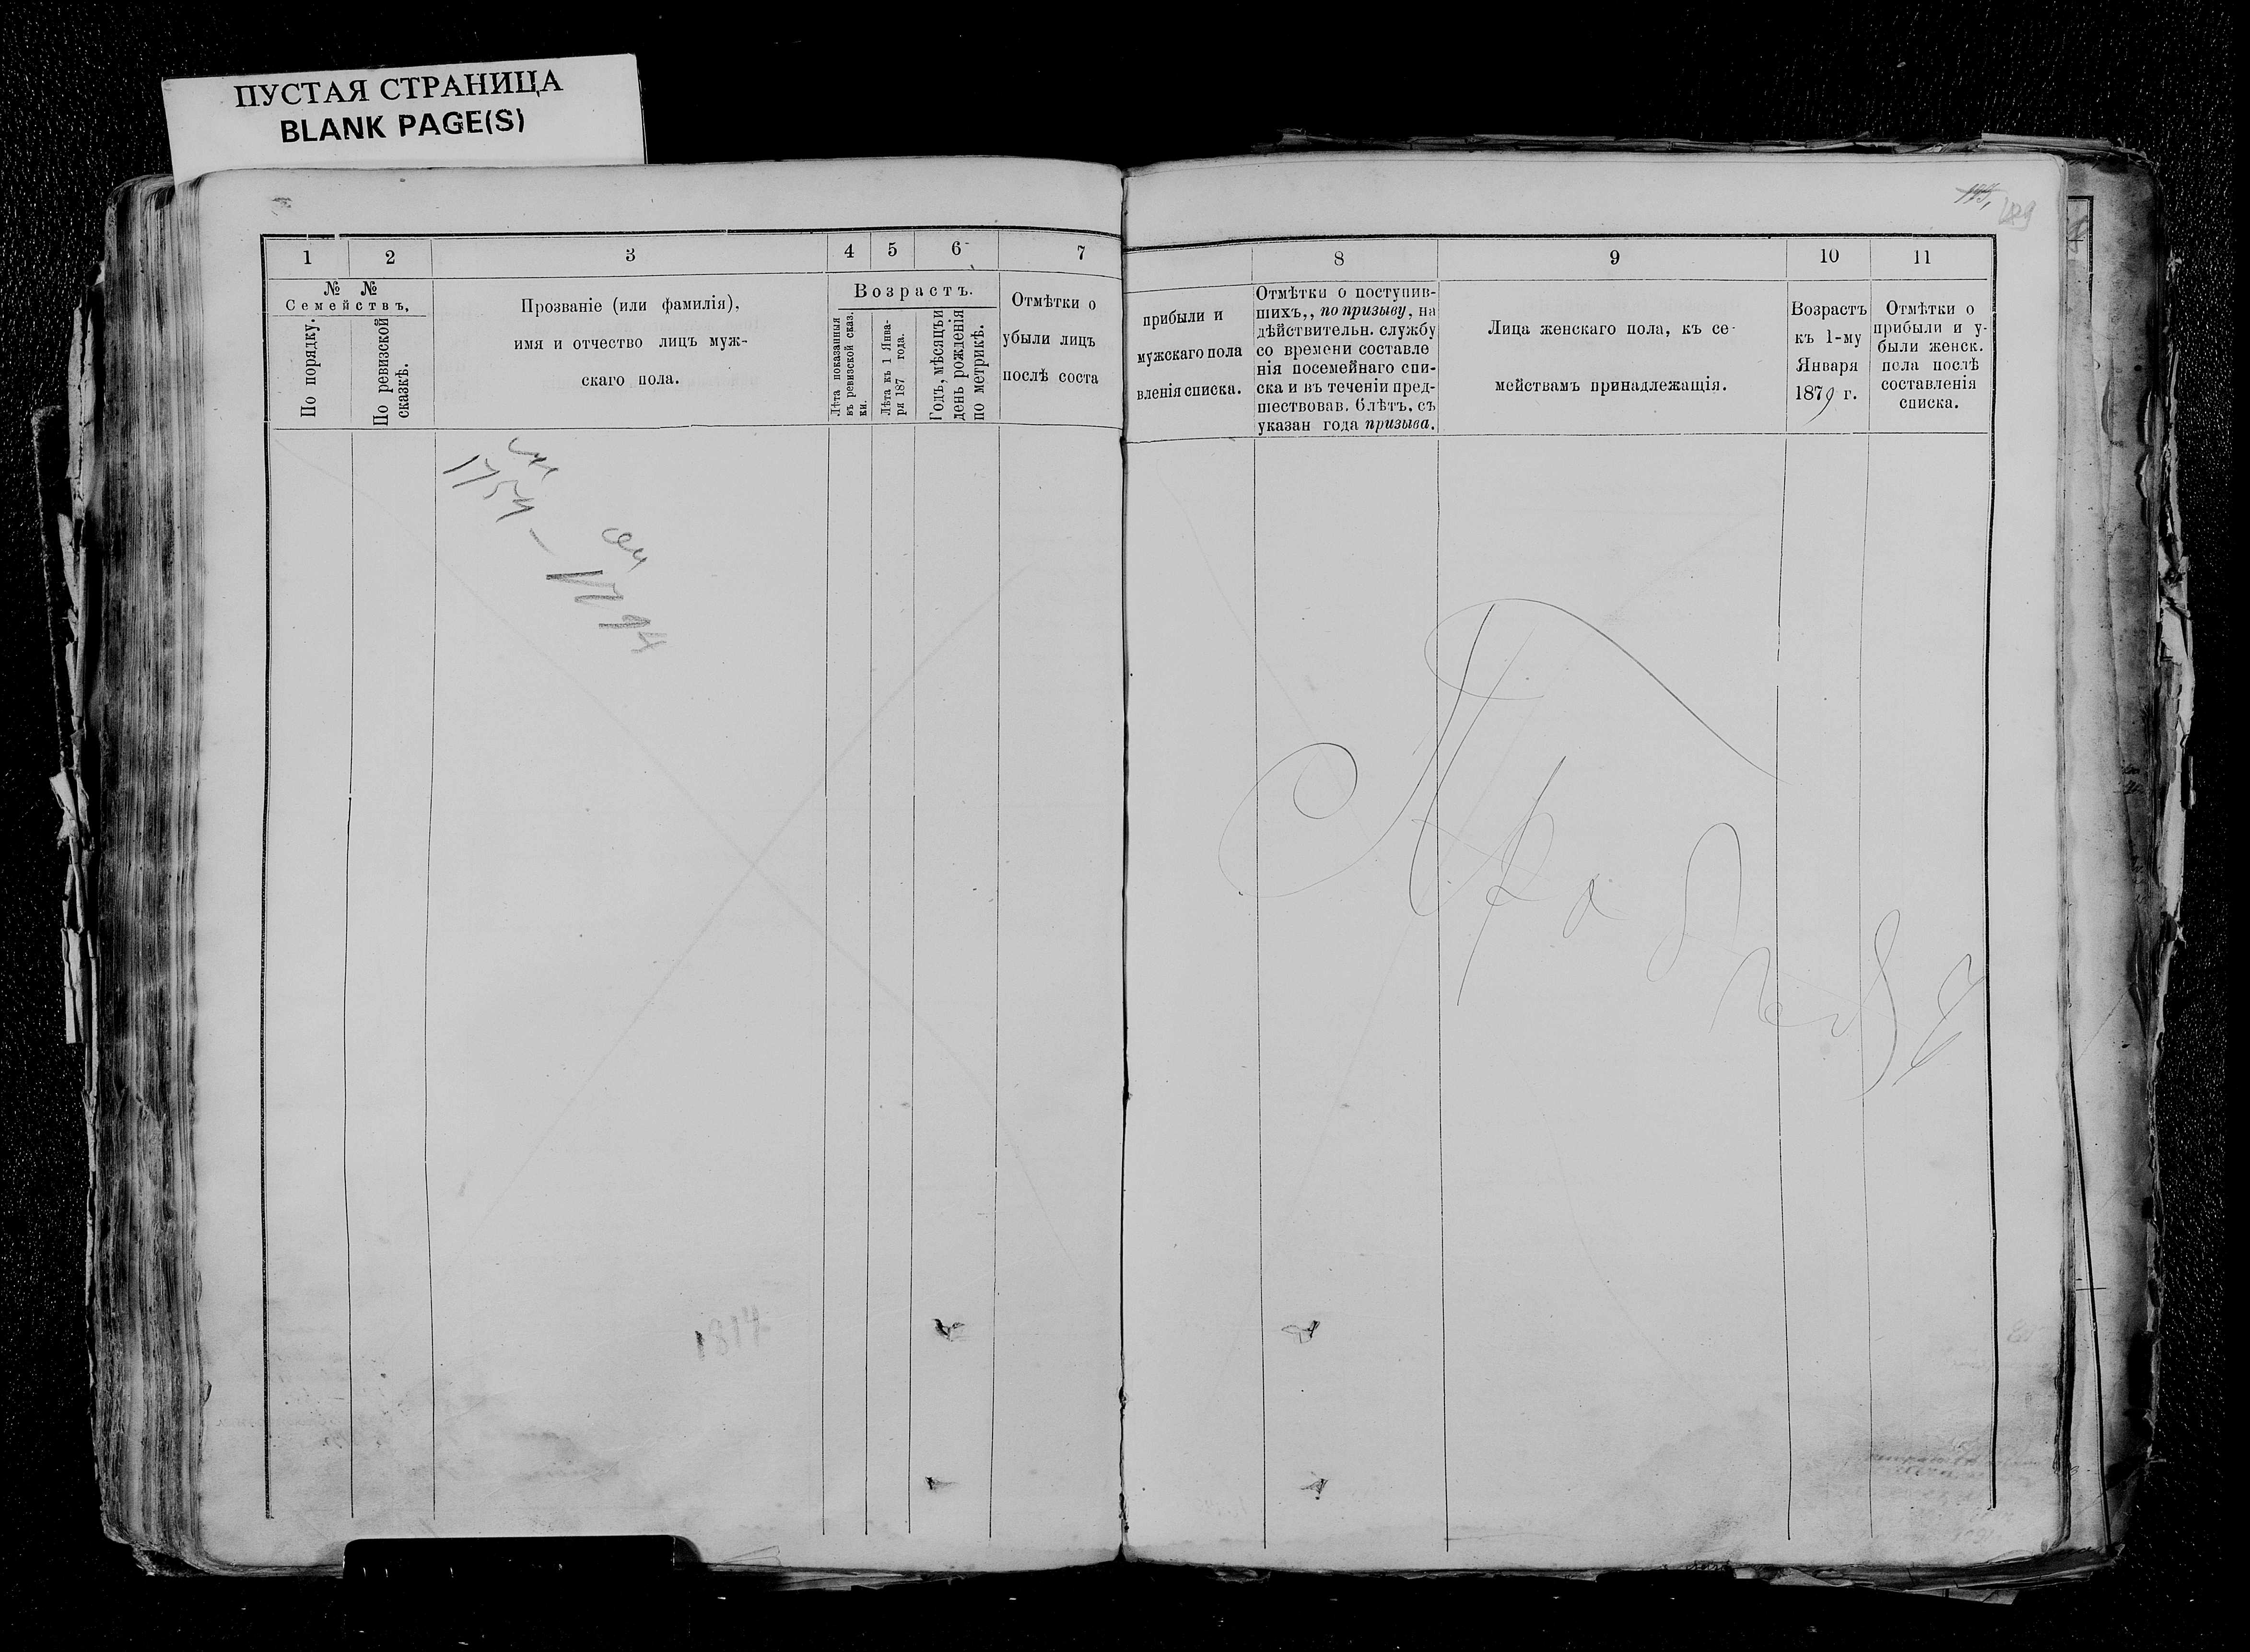 ПУСТАЯ СТРАНИЦА
BLANK PAGE(S)
1
2
3
4
5
6
7
8
9
10
11
№ №
Семействъ,
По порядку.
По ревизской
сказкѣ.
Прозваніе (или фамилія),
имя и отчество лицъ муж-
скаго пола.
Возрастъ.
Лѣта показанныя
въ ревизской сказ.
ки.
Лѣта къ 1 Янва-
ря 187 года.
Годъ, мѣсяцъ и
день рожденія
по метрикѣ.
Отмѣтки о
убыли лицъ
послѣ соста
прибыли и
мужскаго пола
вленія списка.
Отмѣтки о поступив-
шихъ,, по призыву, на
дѣйствительн. службу
со времени составле
нія посемейнаго спи-
ска и въ теченіи пред-
шествовав. блѣтъ, съ
указан года призыва.
Лица женскаго пола, къ се-
мействамъ принадлежащія.
Возрастъ
къ 1-му
Января
1879 г.
Отмѣтки о
прибыли и у-
были женск.
пола послѣ
составленія
списка.
1814